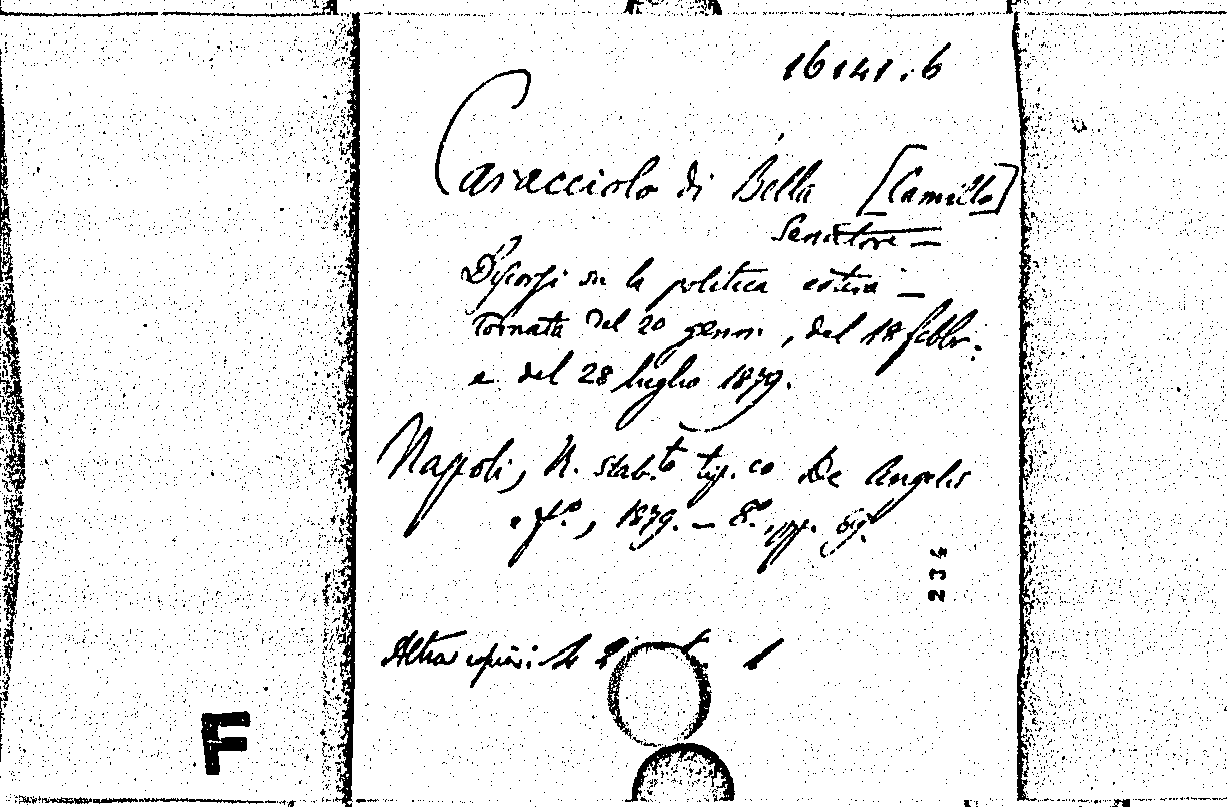 16141.6
Caracciolo di Bella [Camillo]
Senatore —
Discorsi su la politica estera —
Tornata del 20 genn. , del 18 febbr.
e del 28 luglio 1879.
Napoli, R. stab.to tip.co De Angelis
e f.o, 1879. — 8.o pp. 69.
234
Altra copia:
F